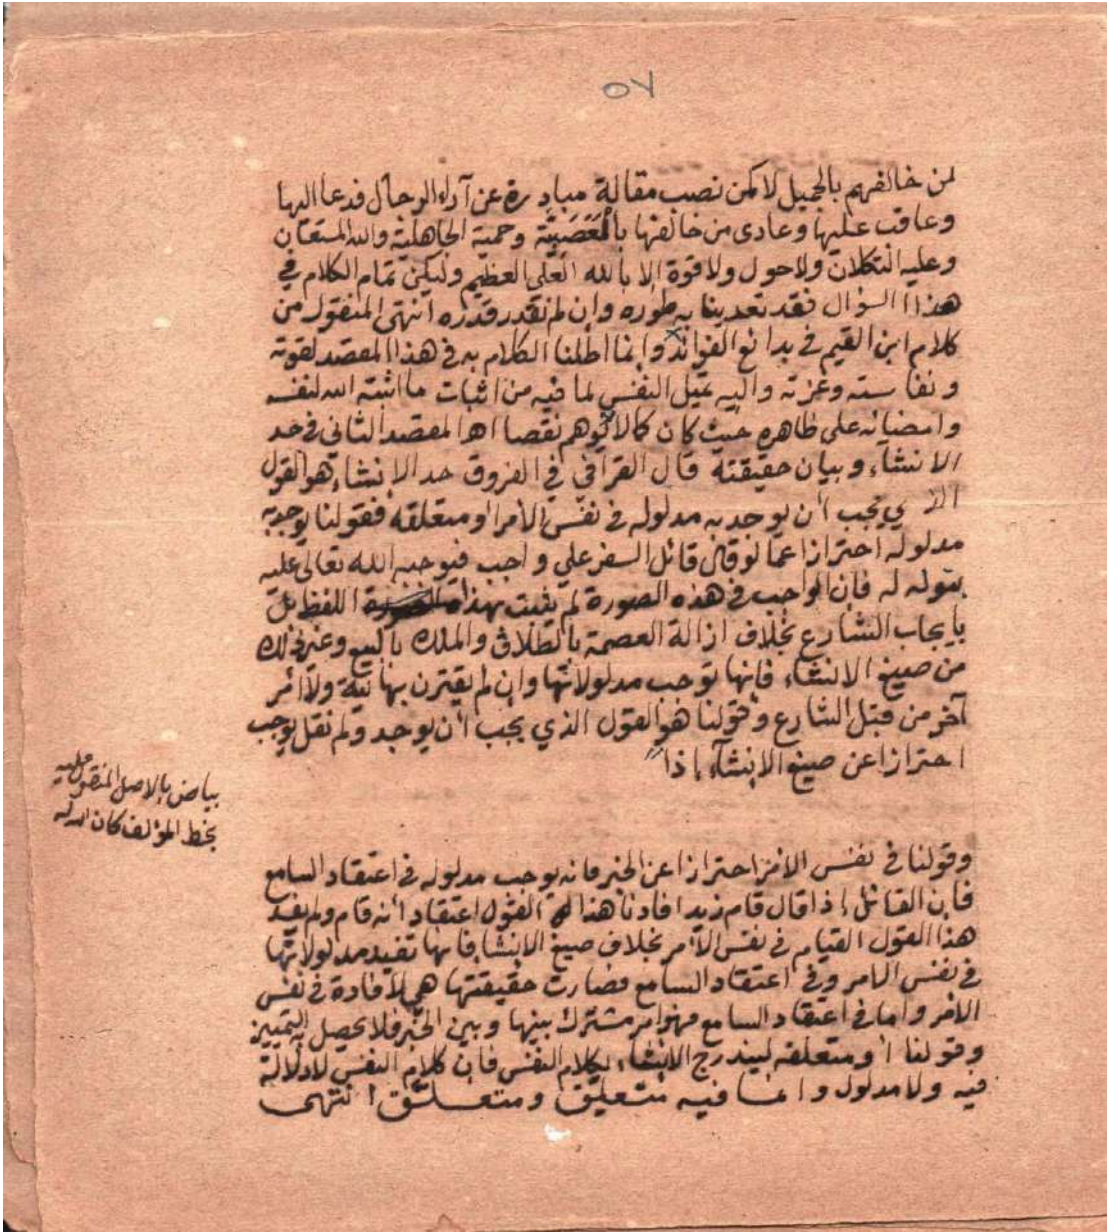 ٥٧
لمن خالفهم بالجميل لا كمن نصب مقالة مبادرة عن آراء الرجال فدعا اليها
وعاقب عليها وعادى من خالفها بالعَصَبيّة وحمية الجاهلية والله المستعان
وعليه التكلان ولا حول ولا قوة الا بالله العلي العظيم وليكن تمام الكلام في
هذا السؤال فقد تعدينا به طوره وان لم نقدر قدره انتهى المنقول من
كلام ابن القيم في بدائع الفوائد وانما اطلنا الكلام به في هذا المقصد لقوته
ونفاسته وعزته واليه تميل النفس لما فيه من اثبات ما اثبته الله لنفسه
وامضيانه على ظاهره حيث كان كمالا لا توهم نقصا اهـ المقصد الثاني في حد
الانشاء وبيان حقيقته قال القرافي في الفروق حد الانشاء هو القول
الذي يجب أن يوجد به مدلوله في نفس الأمر او متعلقه فقولنا يوجد به
مدلوله احترازا عما لو قال قائل السفر علي واجب فيوجبه الله تعالى عليه
بقوله له فان الواجب في هذه الصورة لم يثبت بهذا اللفظ بل
بايجاب الشارع بخلاف ازالة العصمة بالطلاق والملك بالبيع وغير ذلك
من صيغ الانشاء فانها توجب مدلولاتها وان لم يقترن بها نية ولا أمر
آخر من قبل الشارع وقولنا هو القول الذي يجب أن يوجد ولم نقل يوجب
احترازا عن صيغ الانشاء إذا
بياض بالاصل المنقول عليه
بخط المؤلف كان الله له
وقولنا في نفس الامر احترازا عن الخبر فانه يوجب مدلوله في اعتقاد السامع
فإن القائل إذا قال قام زيد افادنا هذا القول اعتقاد أنه قام ولم يفد
هذا القول القيام في نفس الأمر بخلاف صيغ الانشا فانها تفيد مدلولاتها
في نفس الامر وفي اعتقاد السامع فصارت حقيقتها هي الافادة في نفس
الامر واما في اعتقاد السامع فهو امر مشترك بينها وبين الخبر فلا يحصل به التمييز
وقولنا أو متعلقه ليندرج الانشاء بكلام النفس فان كلام النفس لا دلالة
فيه ولا مدلول وانما فيه متعلِّق ومتعلَّق انتهى